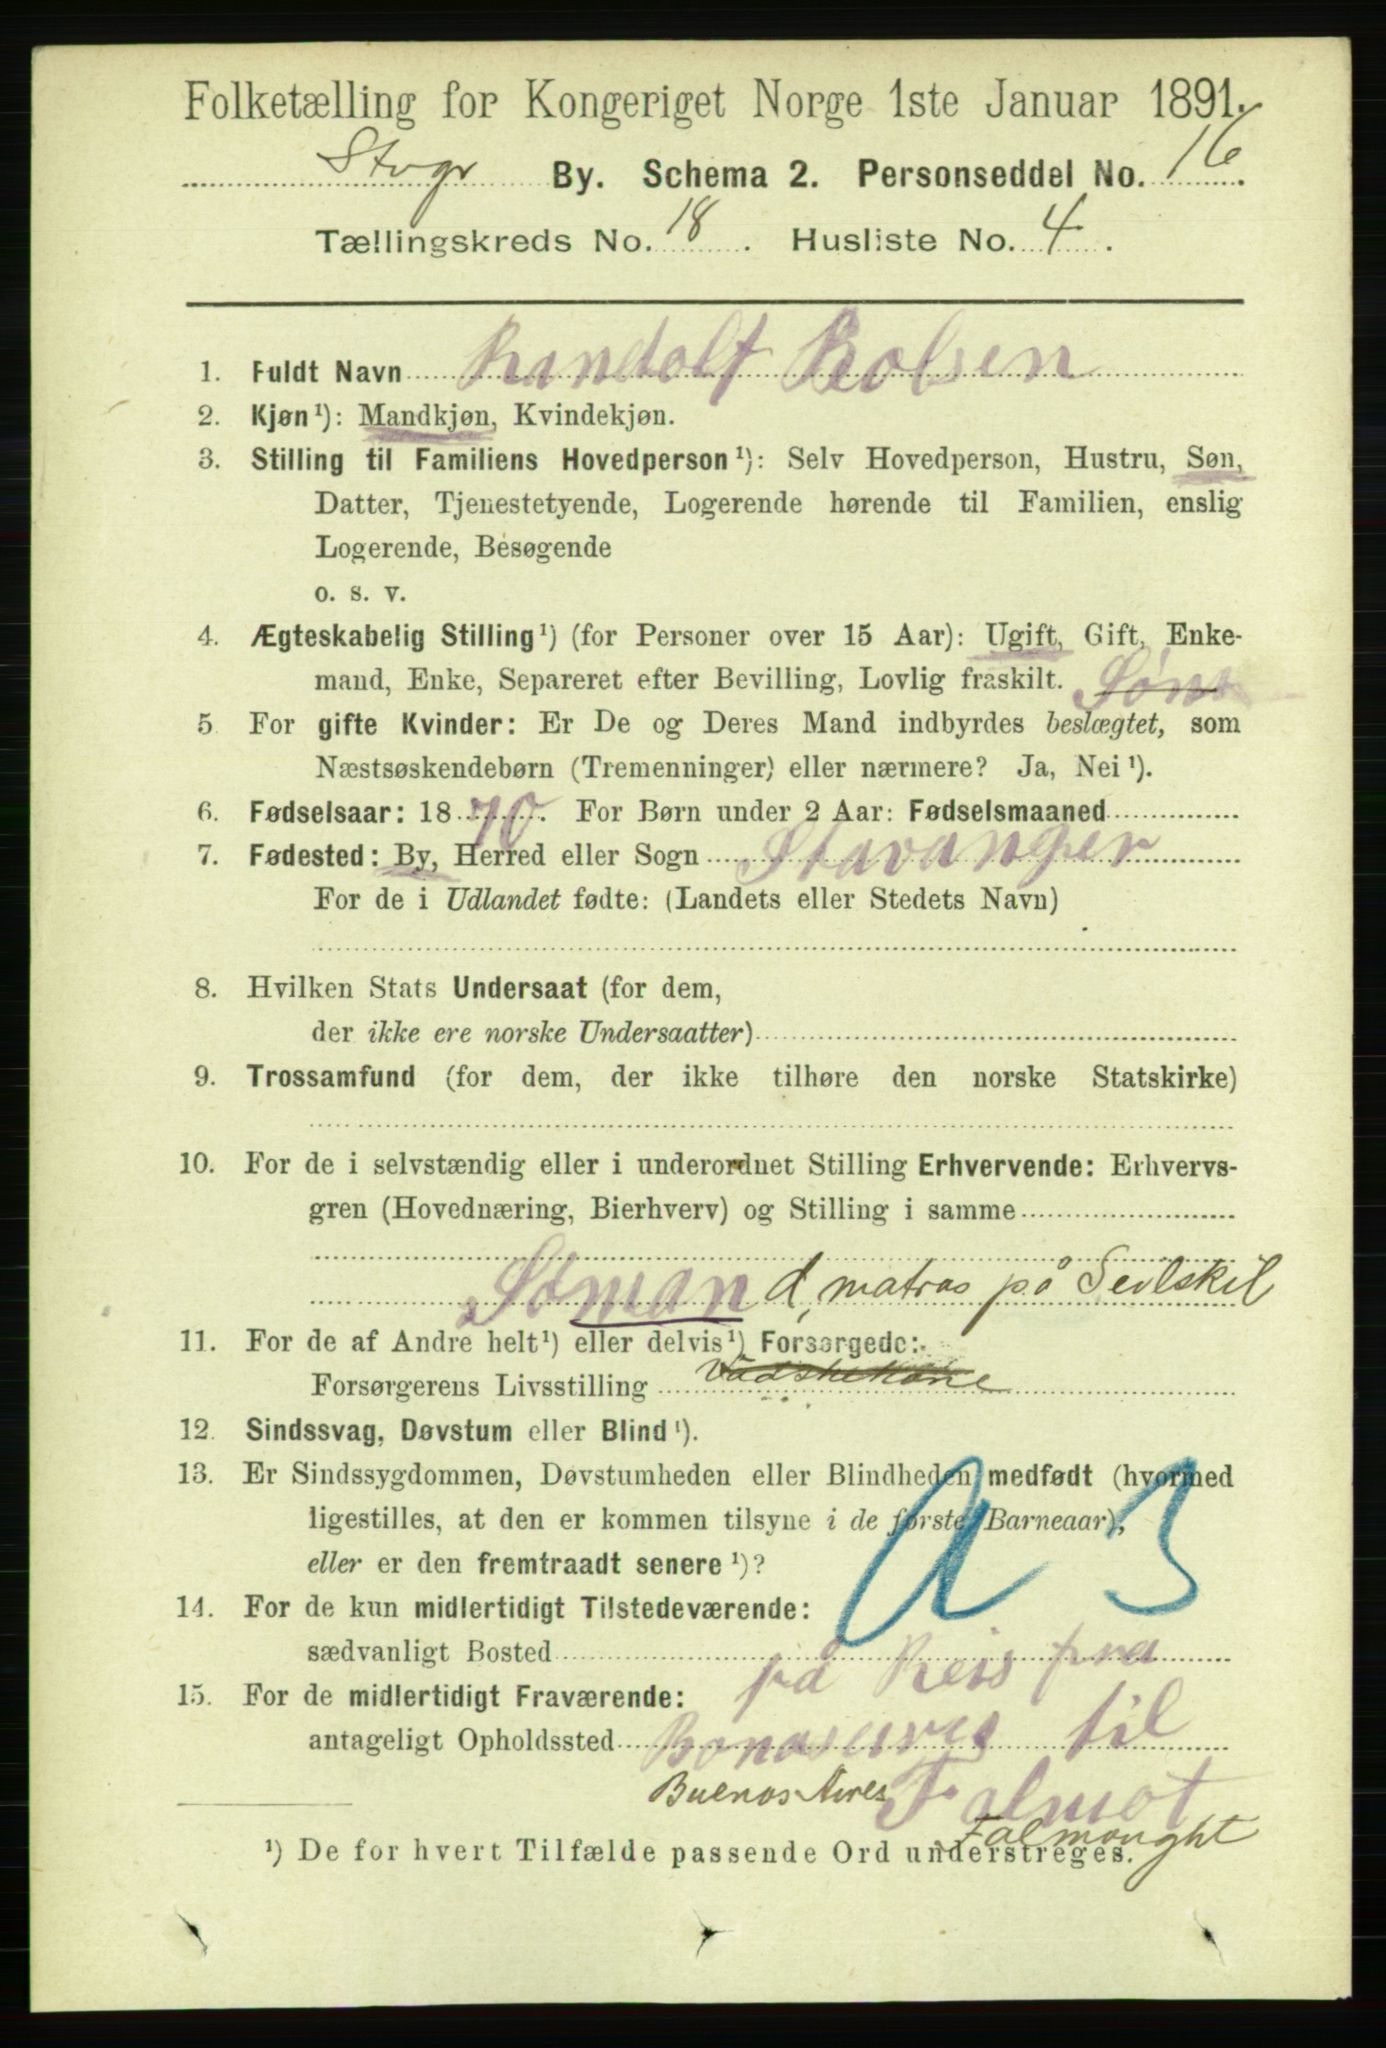 Folketælling for Kongeriget Norge 1ste Januar 1891.
Stvgr By. Schema 2. Personseddel No. 16.
Tællingskreds No. 18. Husliste No. 4.
1. Fuldt Navn Randolf Rolsen
2. Kjøn¹): Mandkjøn, Kvindekjøn.
3. Stilling til Familiens Hovedperson¹): Selv Hovedperson, Hustru, Søn,
Datter, Tjenestetyende, Logerende hørende til Familien, enslig
Logerende, Besøgende
o. s. v.
4. Ægteskabelig Stilling¹) (for Personer over 15 Aar): Ugift, Gift, Enke-
mand, Enke, Separeret efter Bevilling, Lovlig fraskilt.
5 For gifte Kvinder: Er De og Deres Mand indbyrdes beslægtet, som
Næstsøskendebørn (Tremenninger) eller nærmere? Ja, Nei¹).
6. Fødselsaar: 1870. For Børn under 2 Aar: Fødselsmaaned
7. Fødested: By, Herred eller Sogn Stavanger
For de i Udlandet fødte: (Landets eller Stedets Navn)
8. Hvilken Stats Undersaat (for dem,
der ikke ere norske Undersaatter)
9. Trossamfund (for dem, der ikke tilhøre den norske Statskirke)
10. For de i selvstændig eller i underordnet Stilling Erhvervende: Erhvervs-
gren (Hovednæring, Bierhverv) og Stilling i samme
Sømand, matros på Seilskib
11. For de af Andre helt¹) eller delvis¹) Forsørgede:
Forsørgerens Livsstilling Vadskekone
12. Sindssvag, Døvstum eller Blind¹).
13. Er Sindssygdommen, Døvstumheden eller Blindheden medfødt (hvormed
ligestilles, at den er kommen tilsyne i de første Barneaar),
eller er den fremtraadt senere¹)?
14. For de kun midlertidigt Tilstedeværende:
sædvanligt Bosted
15. For de midlertidigt Fraværende: på Reis fra
antageligt Opholdssted Bonaseires til
Buenos Aires Falmot
Falmought
¹) De for hvert Tilfælde passende Ord understreges.